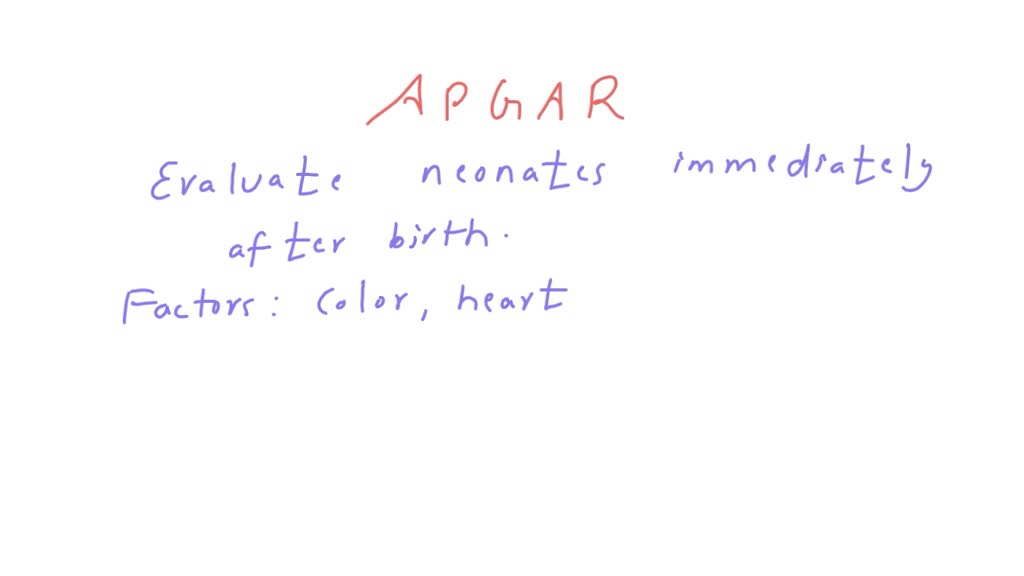 APGAR
Evaluate neonates immediately
after birth.
Factors: Color, heart